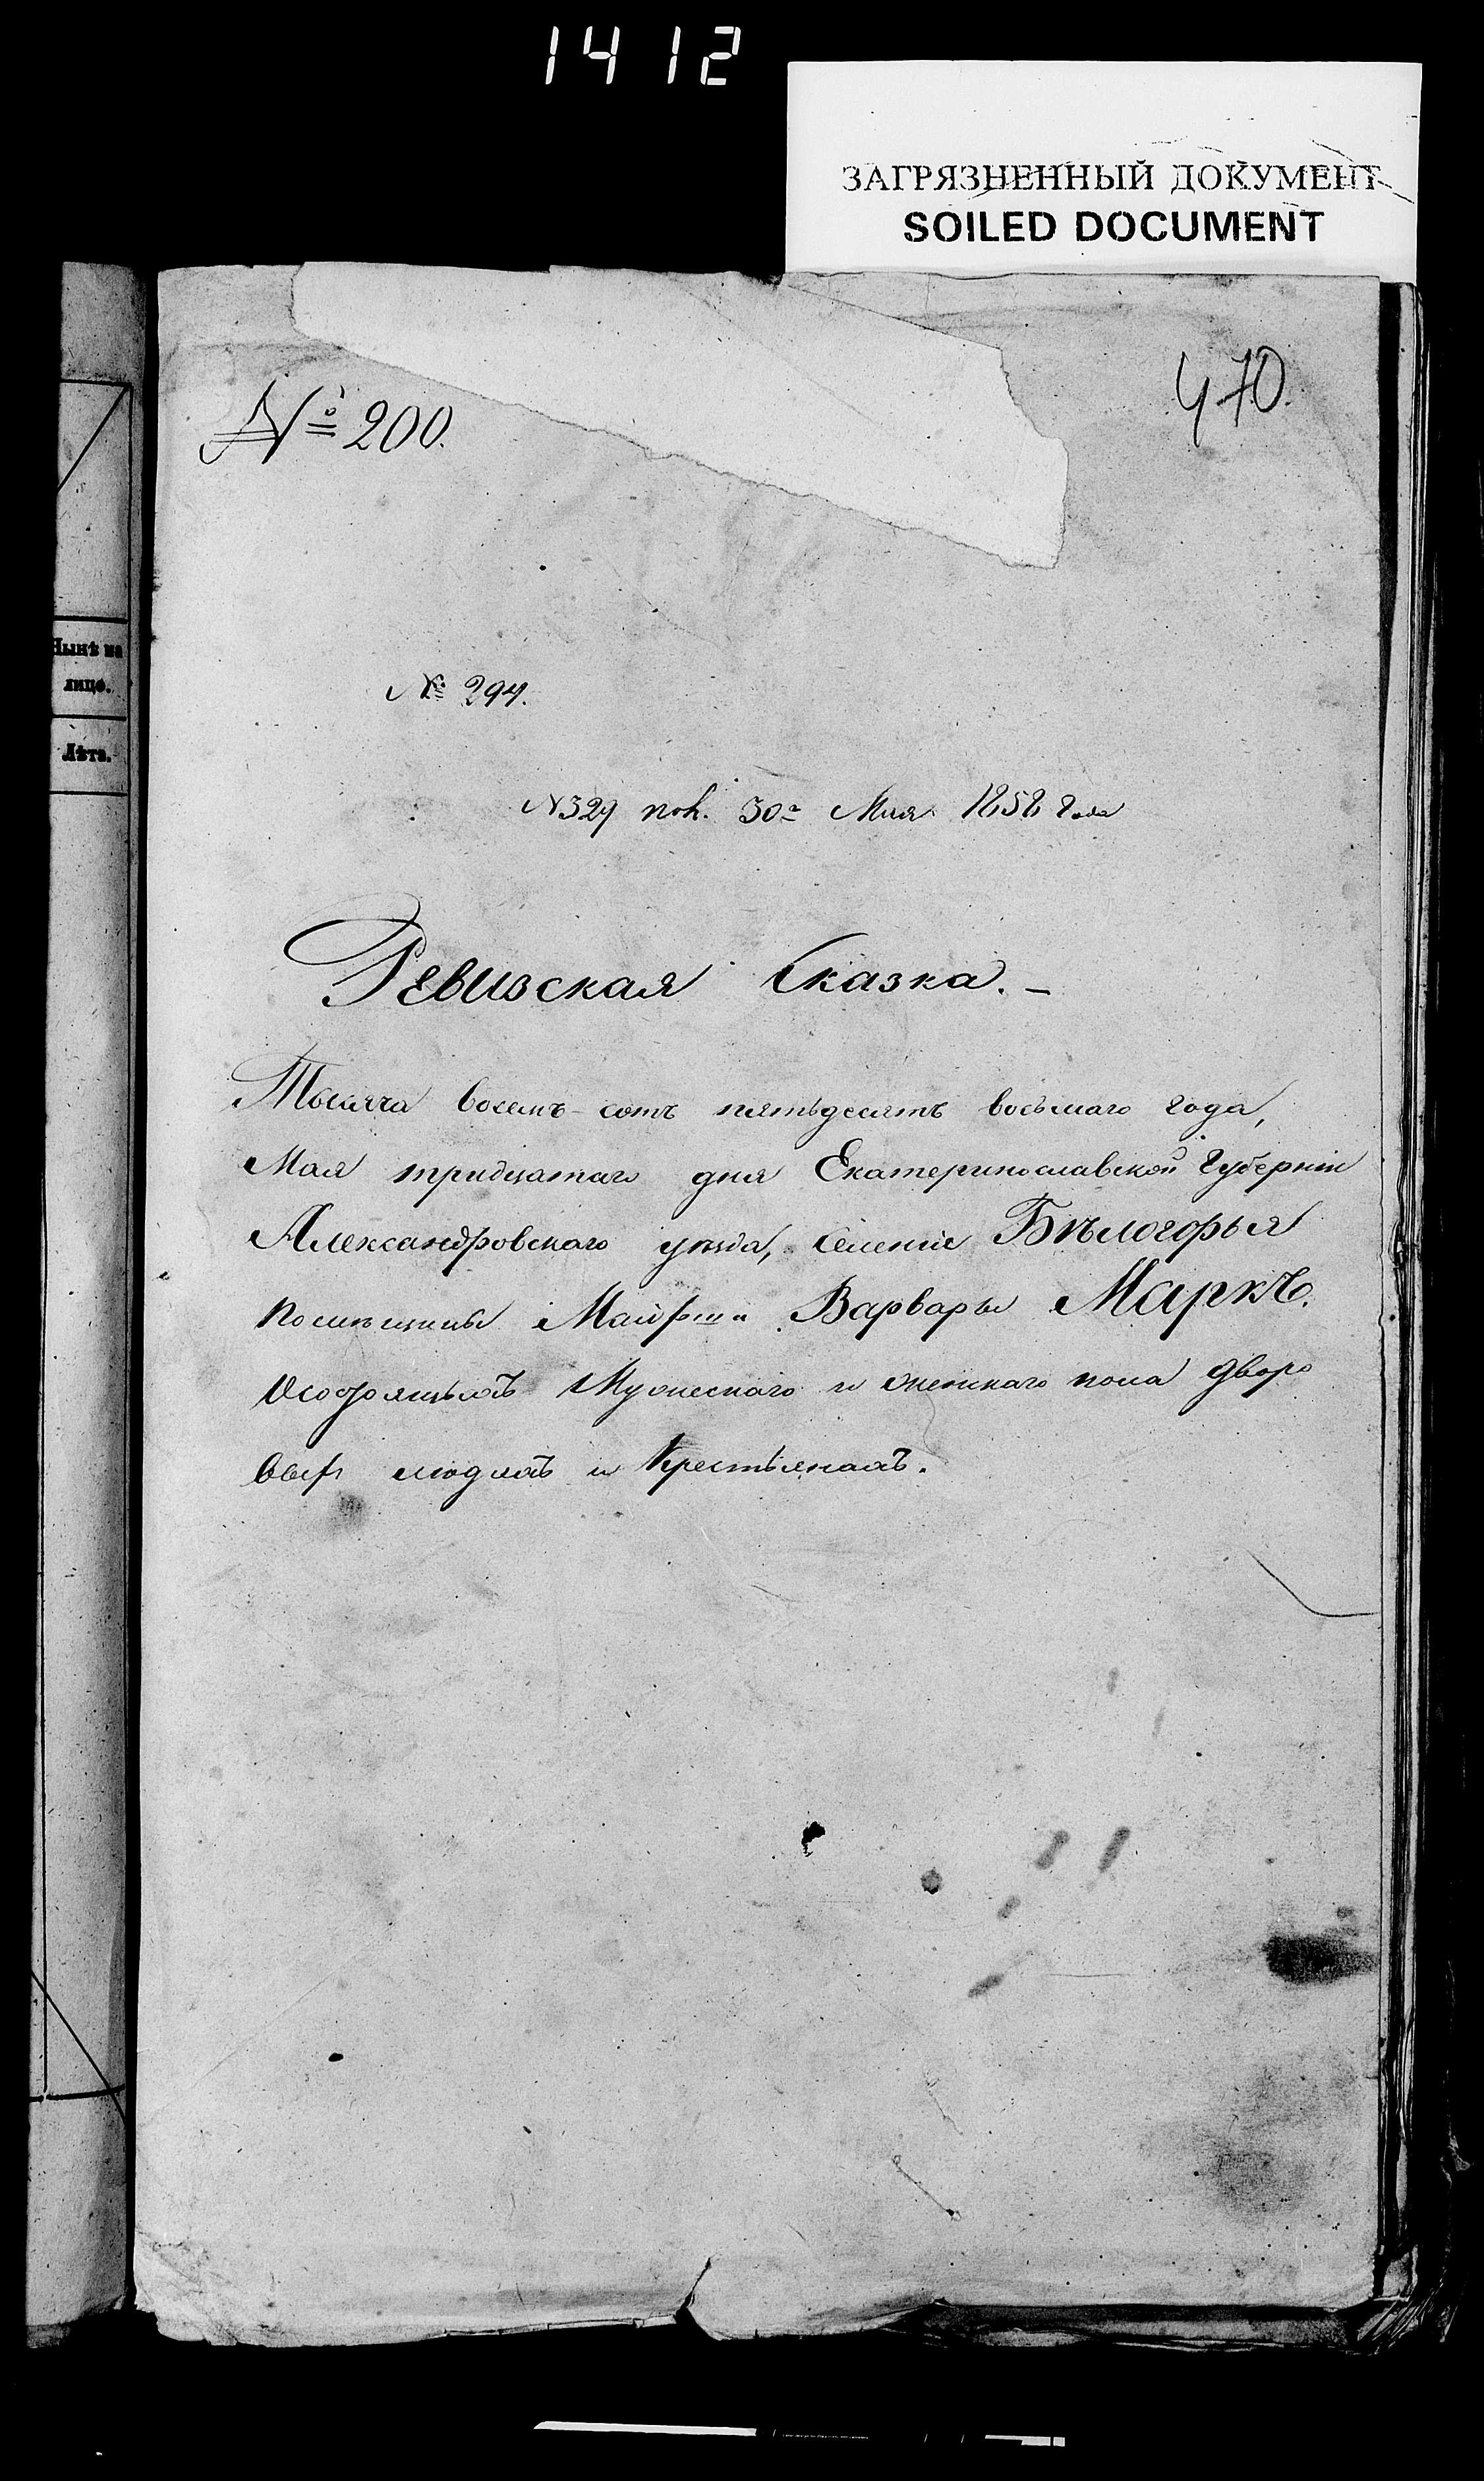 1412
ЗАГРЯЗНЕННЫЙ ДОКУМЕНТ
SOILED DOCUMENT
470.
№ 200.
Нынѣ на
лицо.
Лѣта.
№ 294.
N329 пол. 30го Мая 1858 года
Ревизская Сказка. –
Тысяча восемь-сотъ пятьдесятъ восьмаго года,
Мая тридцатаго дня Екатеринославской Губерніи
Александровскаго уѣзда, селеніе Бѣлогорья
помѣщицы Маіорши Варвары Маркъ.
О мужескаго и женскаго пола дворо
выхъ людяхъ и Крестьянахъ.